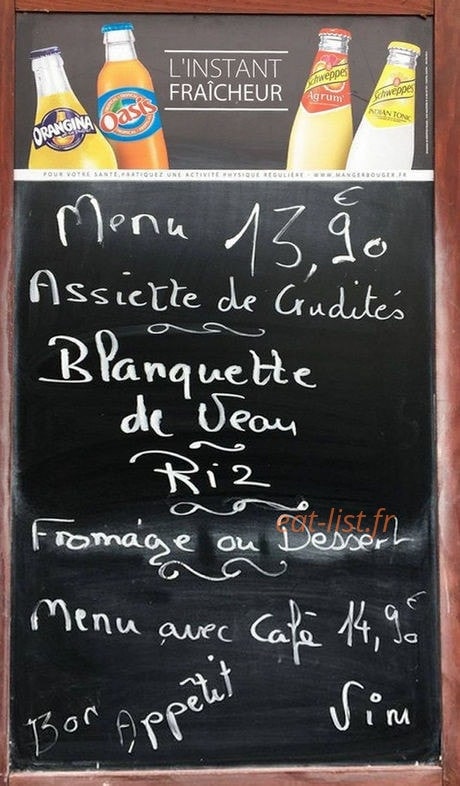 L'INSTANT
FRAÎCHEUR
ORANGINA
Oasis
Schweppes
Agrum'
Schweppes
INDIAN TONIC
POUR VOTRE SANTÉ, PRATIQUEZ UNE ACTIVITÉ PHYSIQUE RÉGULIÈRE - WWW.MANGERBOUGER.FR
Menu 13,90€
Assiette de Crudités
Blanquette
de Veau
Riz
eat-list.fr
Fromage ou Dessert
Menu avec Café 14,90€
Bon Appétit